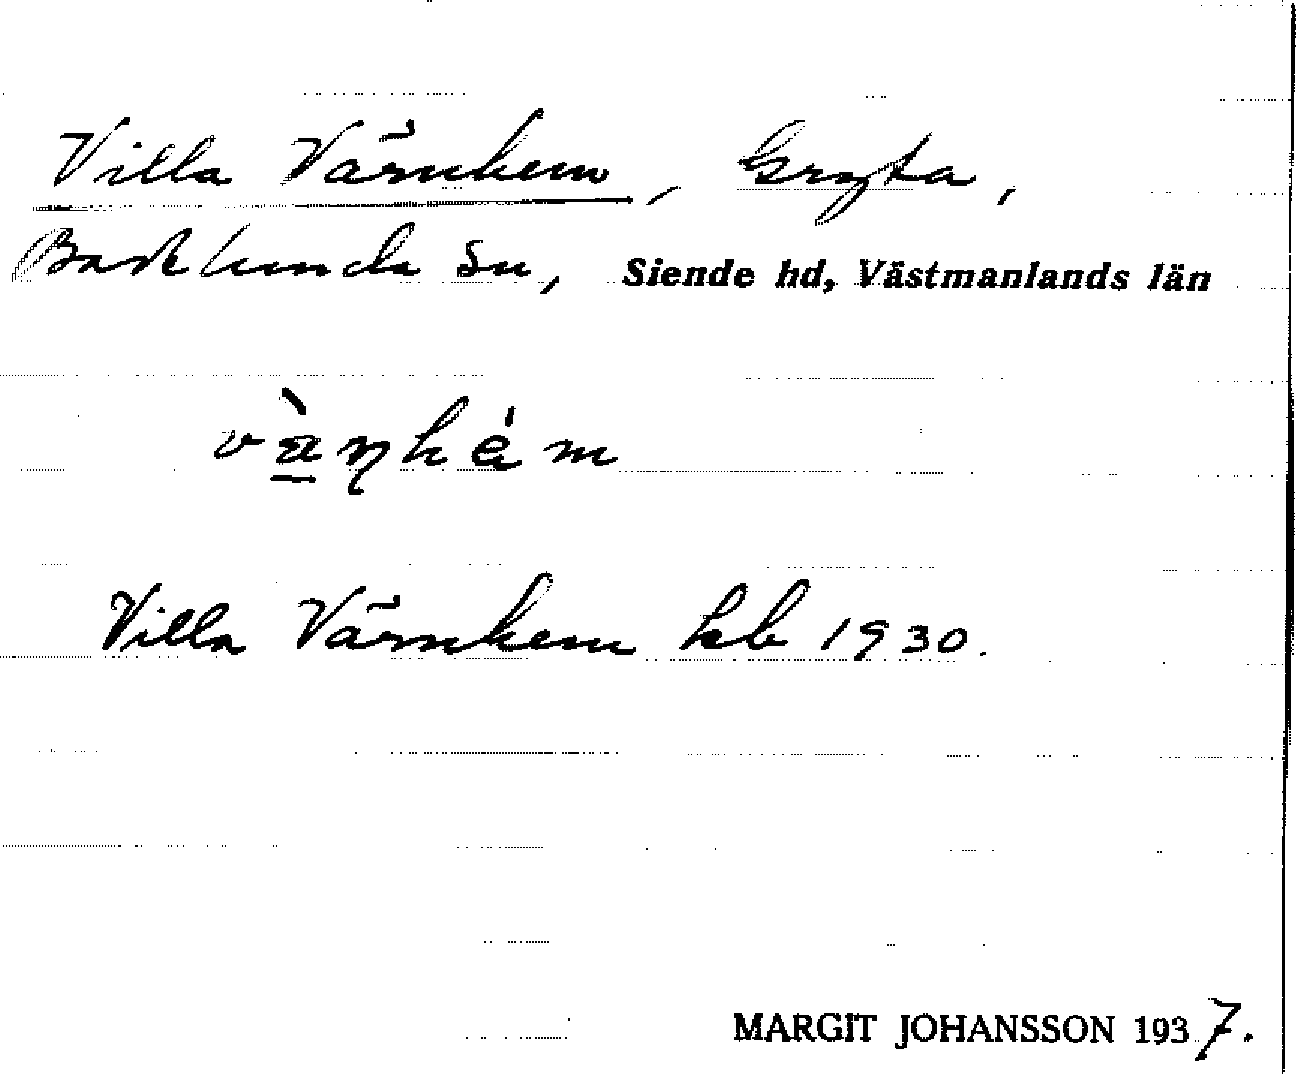 Villa Värnhem, Gryta,
Badelunda sn, Siende hd, Västmanlands län
Villa Värnhem hb 1930.
MARGIT JOHANSSON 1937.